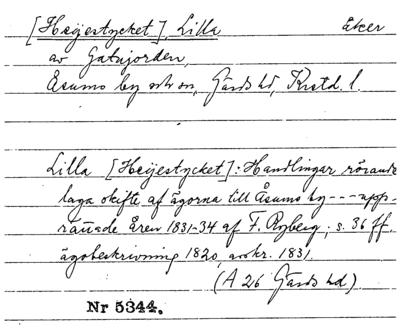 [Heijestycket], Lilla åker
av Gatujorden,
Åsums by och sn, Gärds hd, Kristd. l.
Lilla [Heijestycket]: Handlingar rörande
laga skifte af ägorna till Åsums by --- upp-
rättade Åren 1831-34 af F. Ryberg; s. 36 ff.
ägobeskrivning 1820, avskr. 1831.
(A 26 Gärds hd)
Nr 5344.